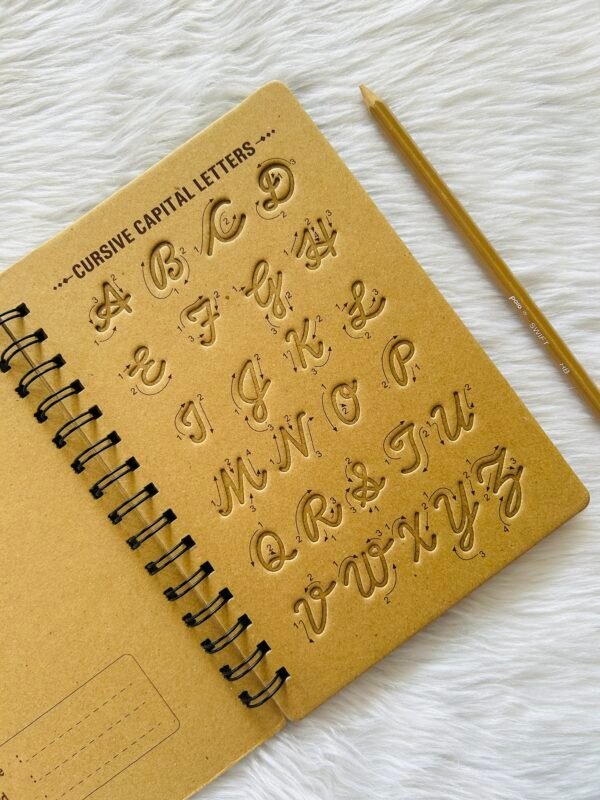 CURSIVE CAPITAL LETTERS
A B C D
E F G H
I J K L
M N O P
Q R S T U
V W X Y Z
SWIFT HB